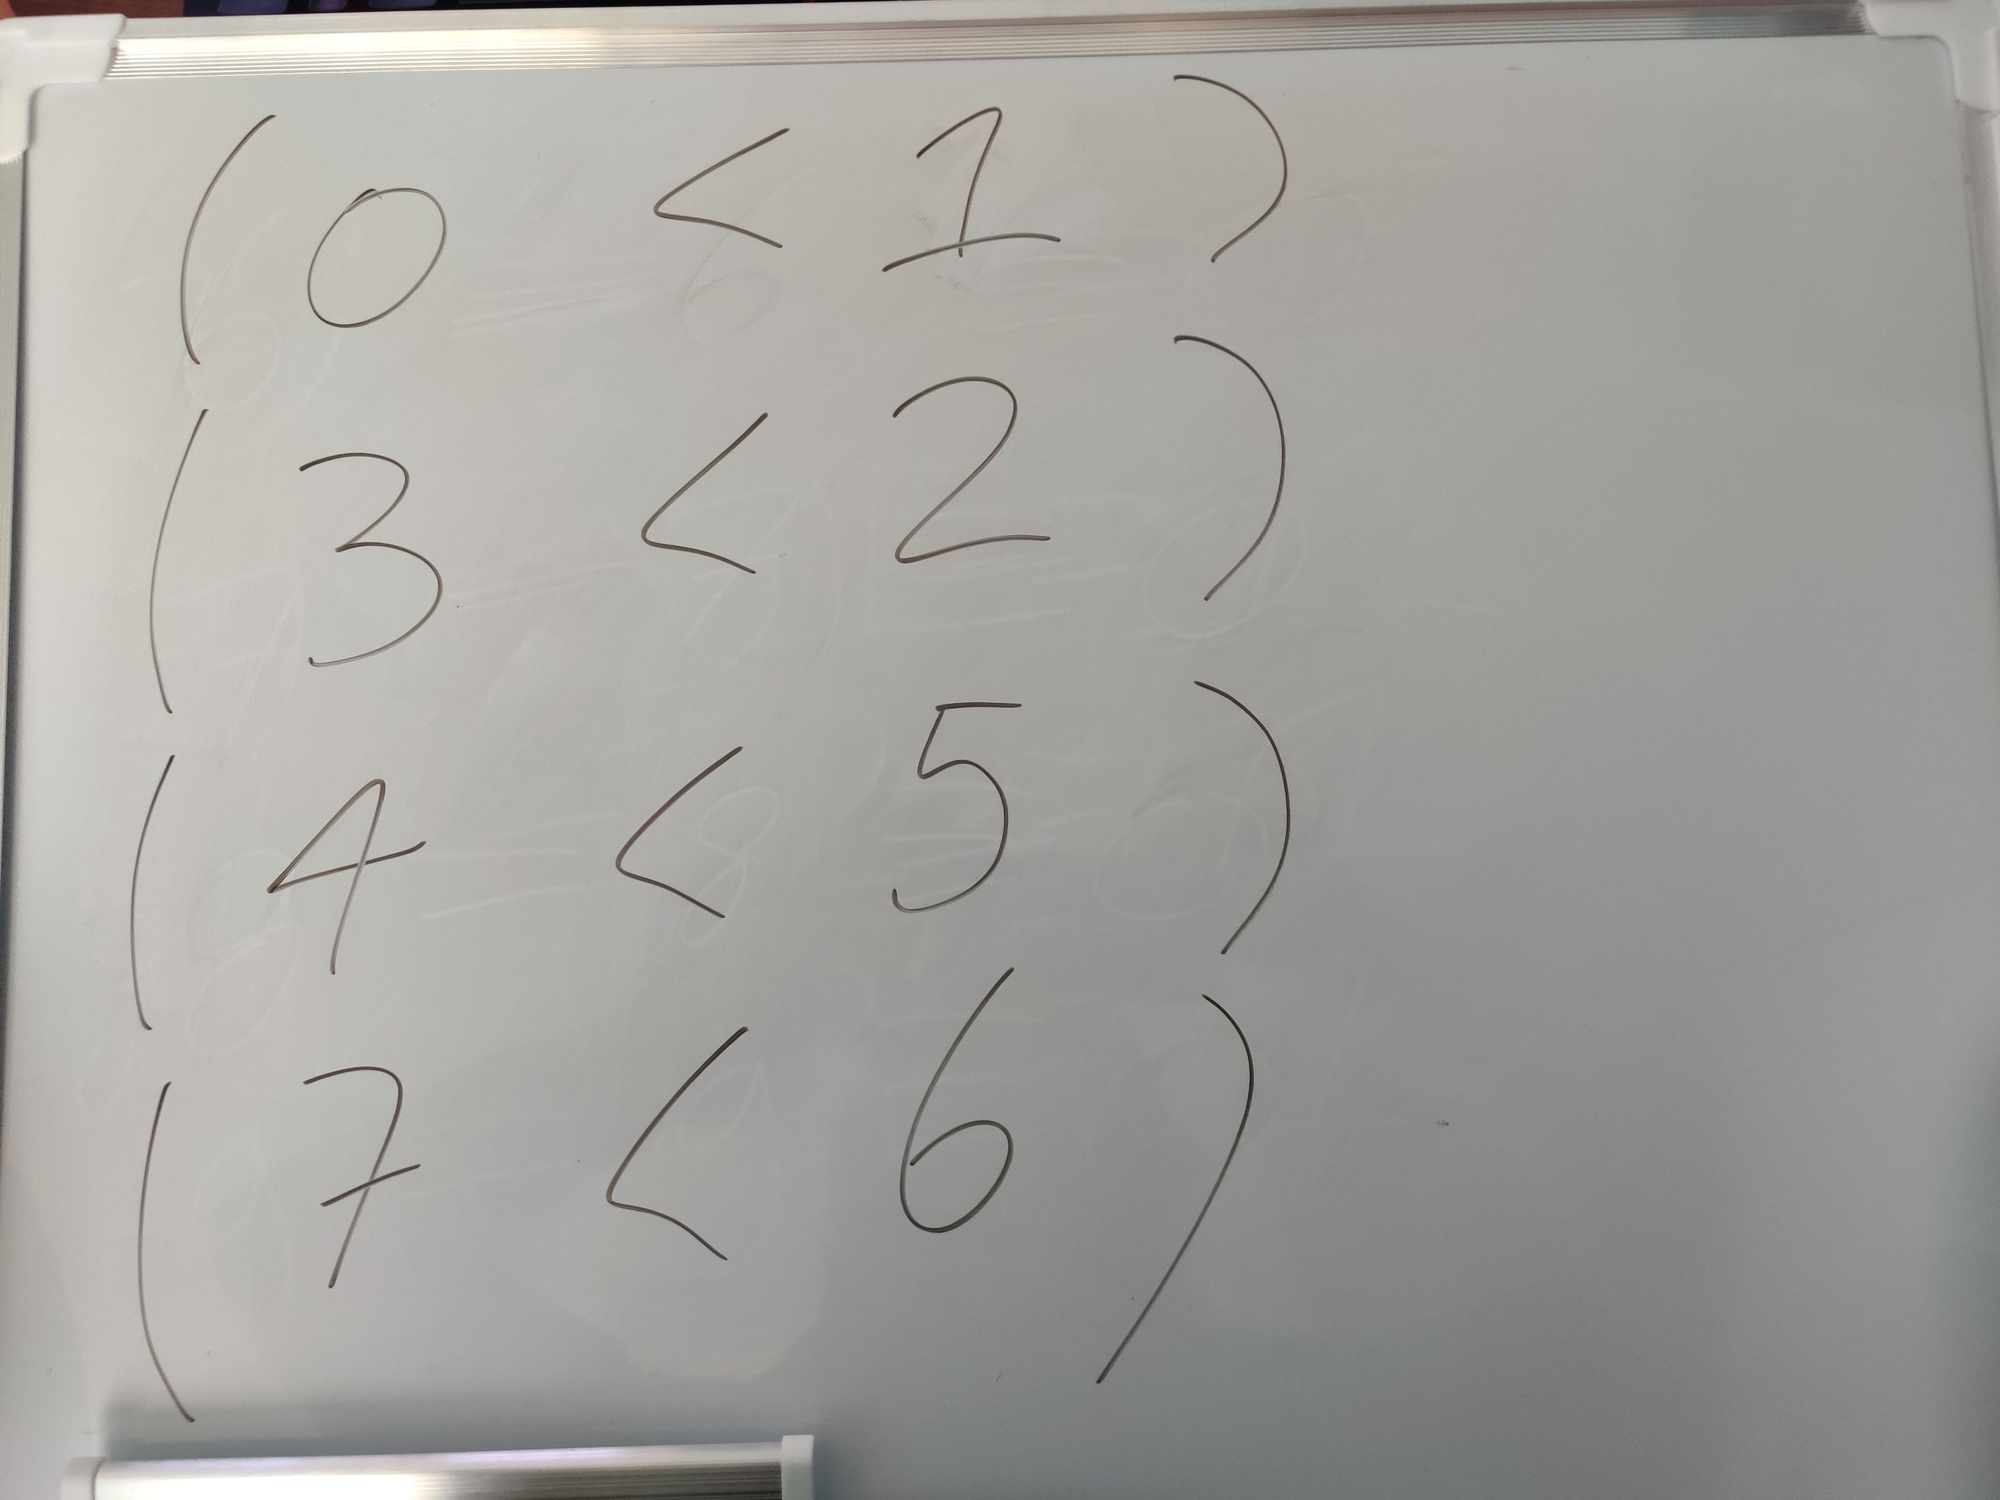 ( 0 < 1 )
( 3 < 2 )
( 4 < 5 )
( 7 < 6 )